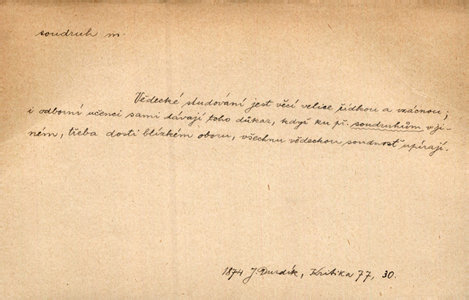 soudruh m.
Vědecké studování jest věcí velice řídkou a vzácnou;
i odborní učenci sami dávají toho důkaz, když ku př. soudruhům v ji-
ném, třeba dosti blízkém oboru, všechnu vědeckou soudnost upírají.
1874 J. Durdík, Kritika 77, 30.